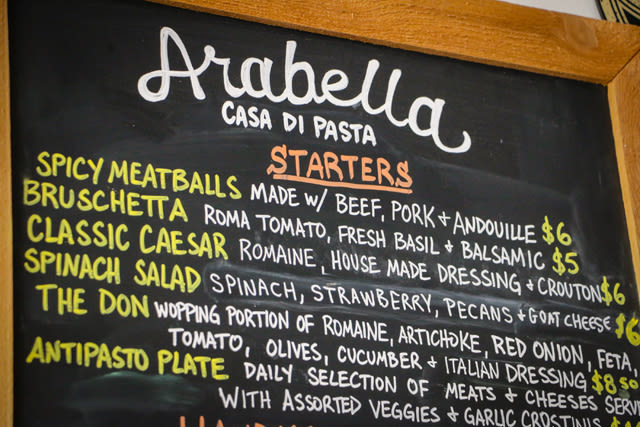 Arabella
CASA DI PASTA
STARTERS
SPICY MEATBALLS MADE W/ BEEF, PORK + ANDOUILLE $6
BRUSCHETTA ROMA TOMATO, FRESH BASIL + BALSAMIC $5
CLASSIC CAESAR ROMAINE, HOUSE MADE DRESSING + CROUTON $6
SPINACH SALAD SPINACH, STRAWBERRY, PECANS + GOAT CHEESE $6
THE DON WOPPING PORTION OF ROMAINE, ARTICHOKE, RED ONION, FETA,
TOMATO, OLIVES, CUCUMBER + ITALIAN DRESSING $8.50
ANTIPASTO PLATE DAILY SELECTION OF MEATS + CHEESES SERV
WITH ASSORTED VEGGIES + GARLIC CROSTINIS